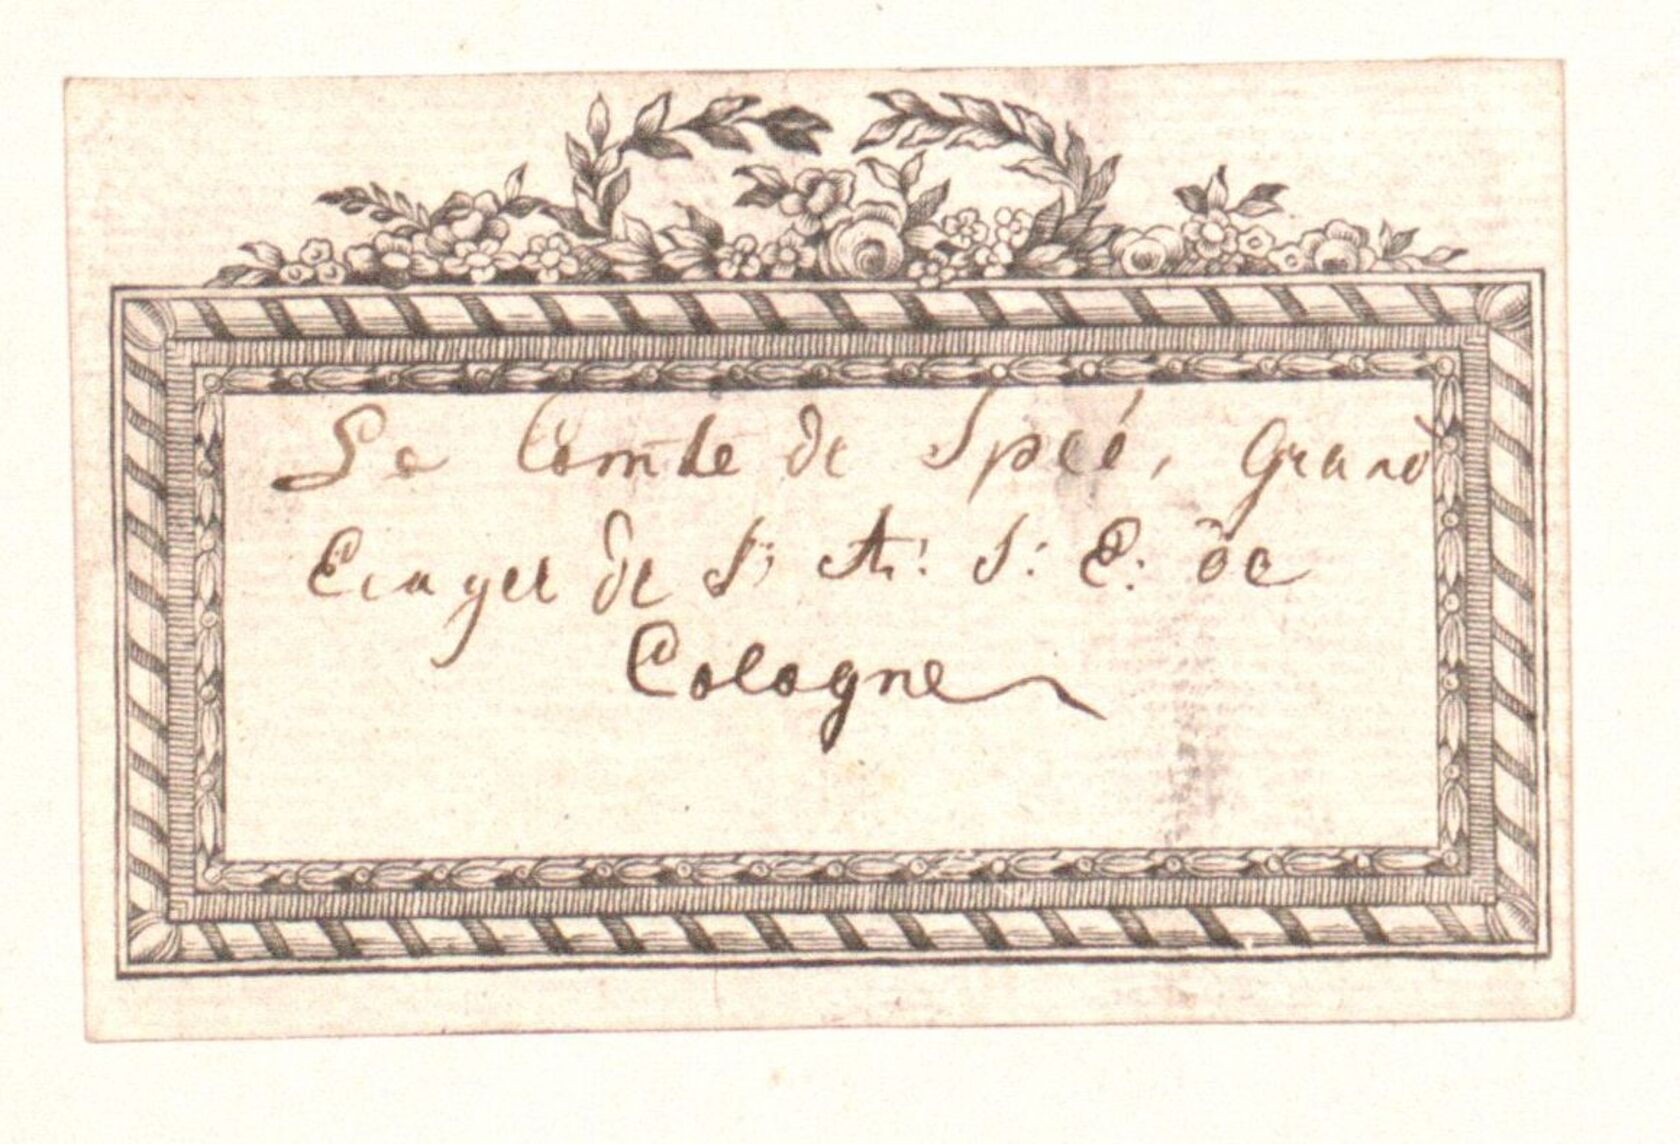 Le Comte de Speé, Grand
Ecuyer de S: A: S: E: de
Cologne